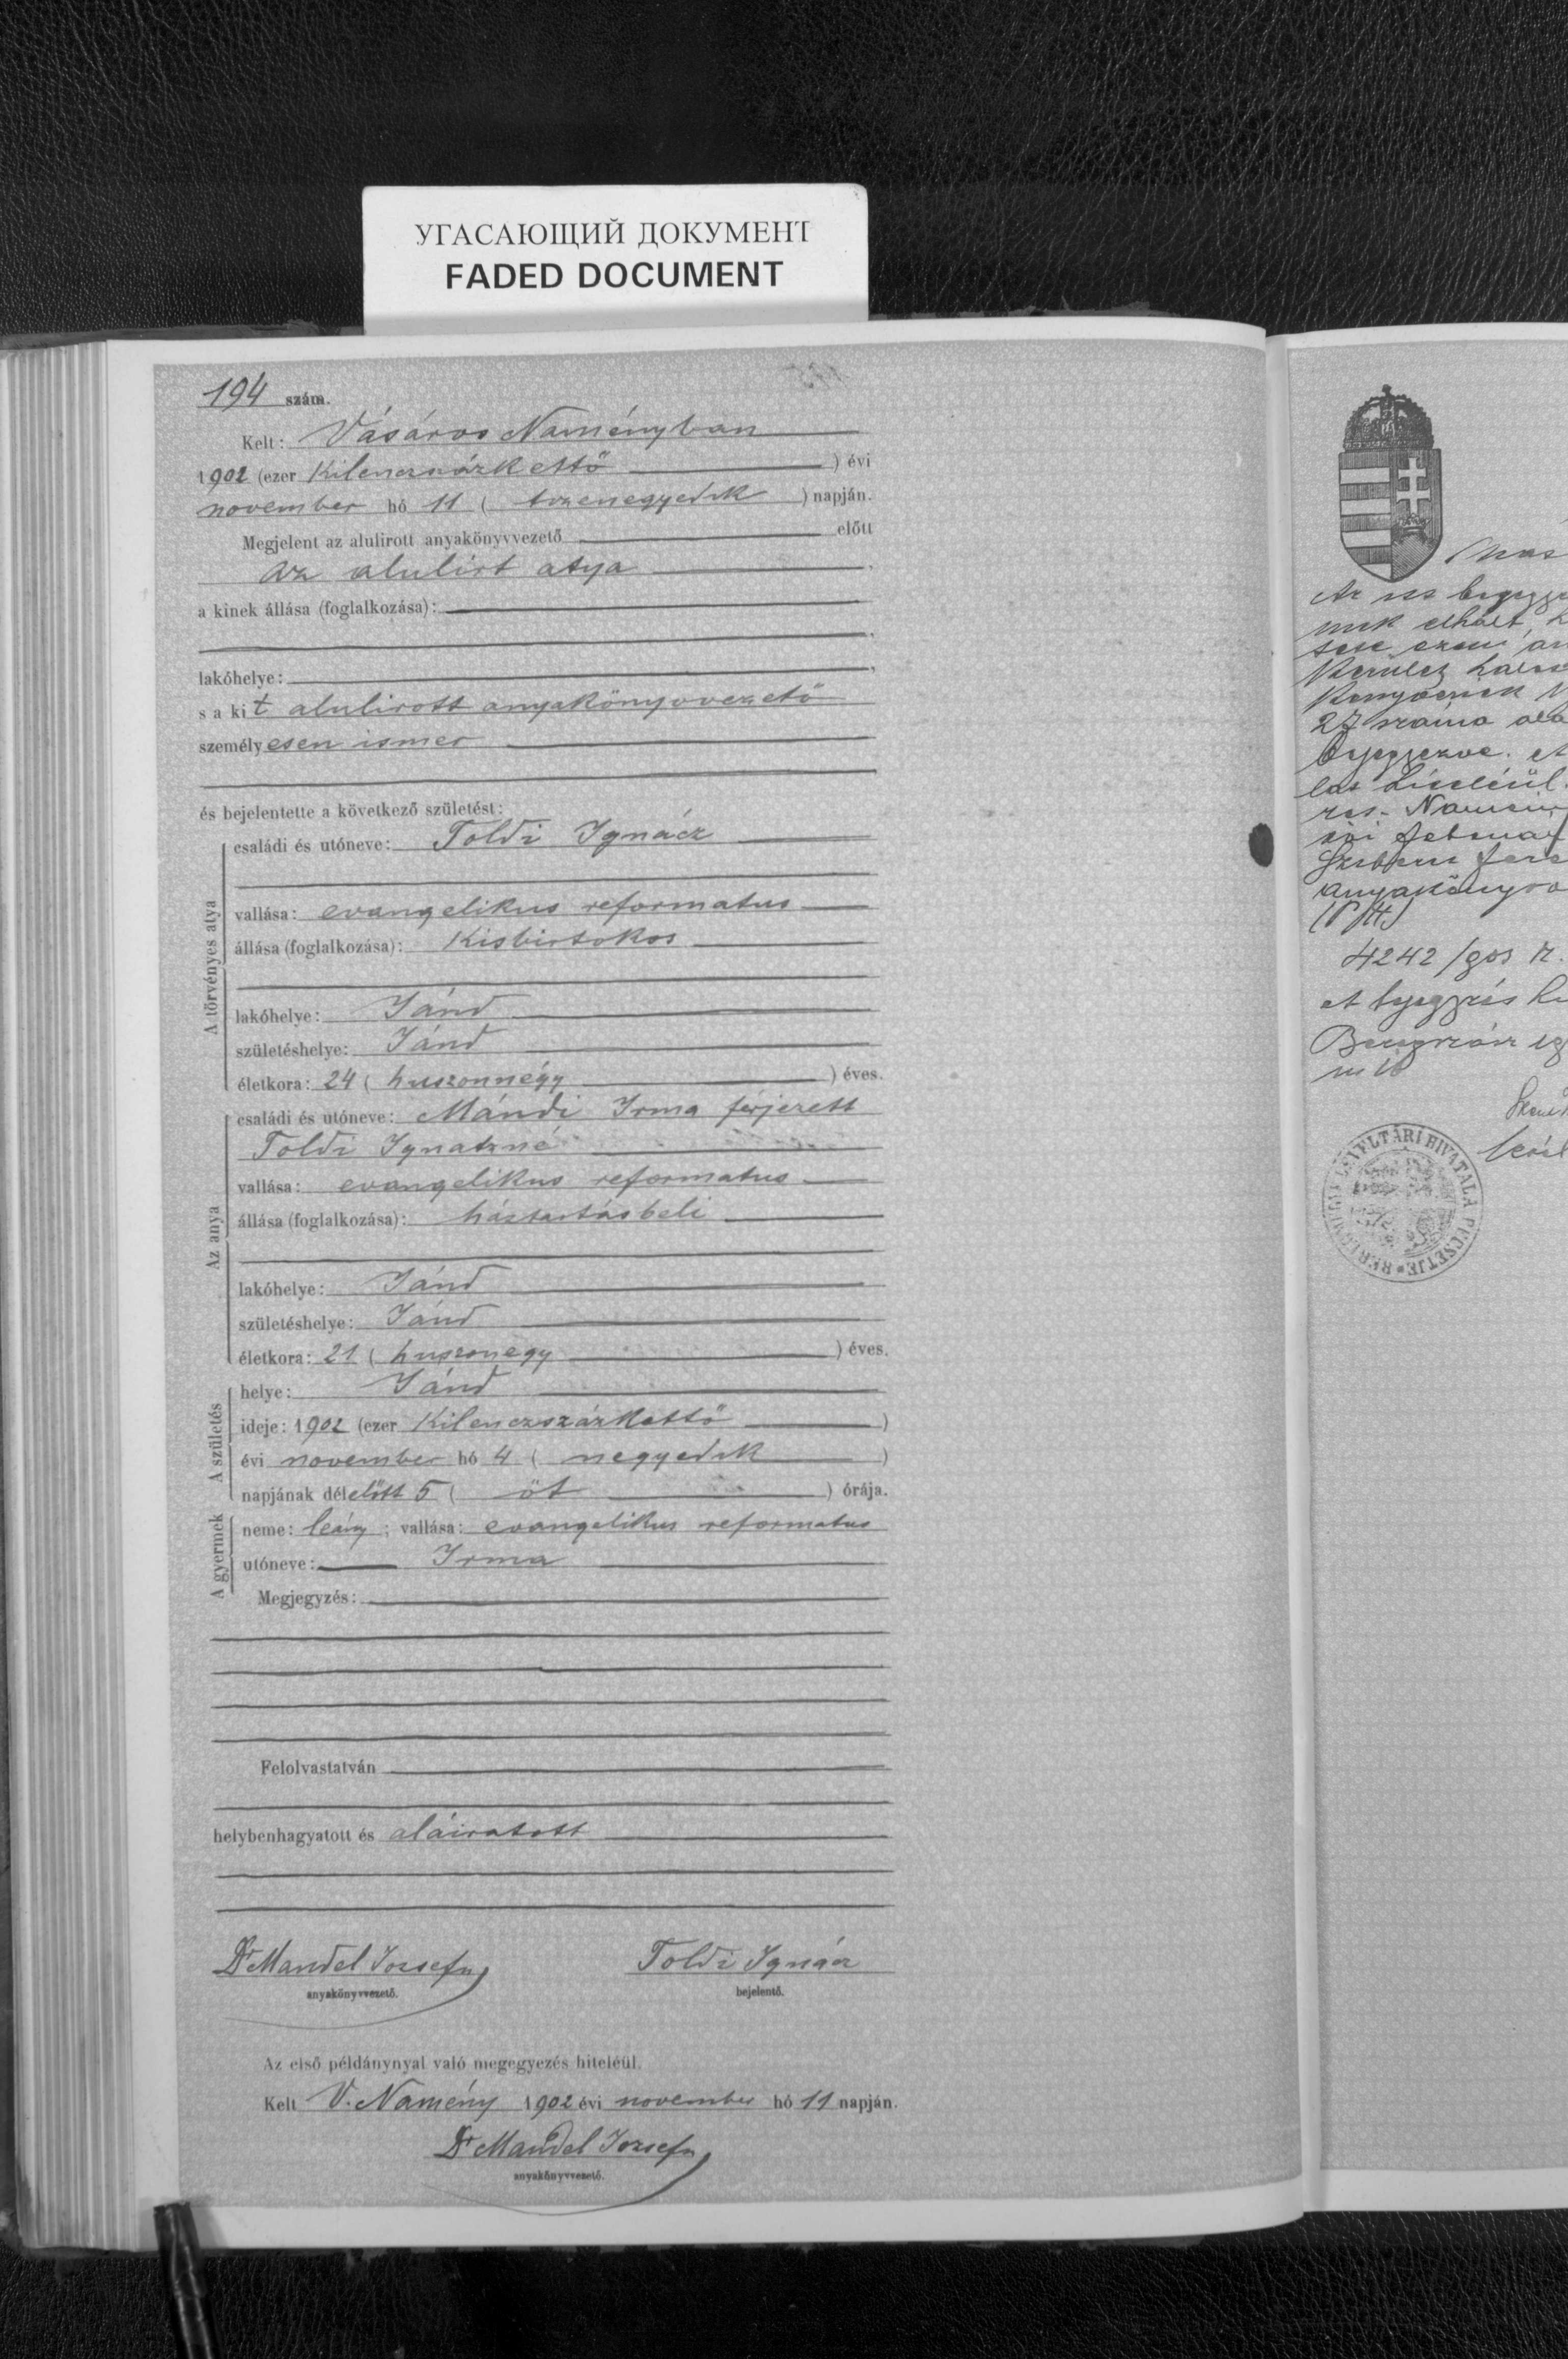 УГАСАЮЩИЙ ДОКУМЕНТ
FADED DOCUMENT
194 szám.
Kelt: Vásáros Naményban
1902 (ezer kilenczszázkettő ) évi
november hó 11 ( tizenegyedik ) napján.
Megjelent az alulirott anyakönyvvezető előtt
az alulirt atya
a kinek állása (foglalkozása):
lakóhelye:
s a kit alulirott anyakönyvvezető
személyesen ismer
és bejelentette a következő születést:
A törvényes atya
családi és utóneve: Toldi Ignácz
vallása: evangelikus reformatus
állása (foglalkozása): Kisbirtokos
lakóhelye: Jánd
születéshelye: Jánd
életkora: 24 ( huszonnégy ) éves.
Az anya
családi és utóneve: Mándi Irma férjezett
Toldi Ignatzné
vallása: evangelikus reformatus
állása (foglalkozása): háztartásbeli
lakóhelye: Jánd
születéshelye: Jánd
életkora: 21 ( huszonegy ) éves.
A születés
helye: Jánd
ideje: 1902 (ezer Kilenczszázkettő )
évi november hó 4 ( negyedik )
napjának délelőtt 5 ( öt ) órája.
A gyermek
neme: leány; vallása: evangelikus reformatus
utóneve: Irma
Megjegyzés:
Felolvastatván
helybenhagyatott és aláiratott
Dr Mandel Jozsef
anyakönyvvezető.
Toldi Ignácz
bejelentő.
Az első példánynyal való megegyezés hiteléül.
Kelt V. Namény 1902 évi november hó 11 napján.
Dr Mandel Jozsef
anyakönyvvezető.
elhalt
27 száma
bejegyezve.
4242/903
et bejegyzés